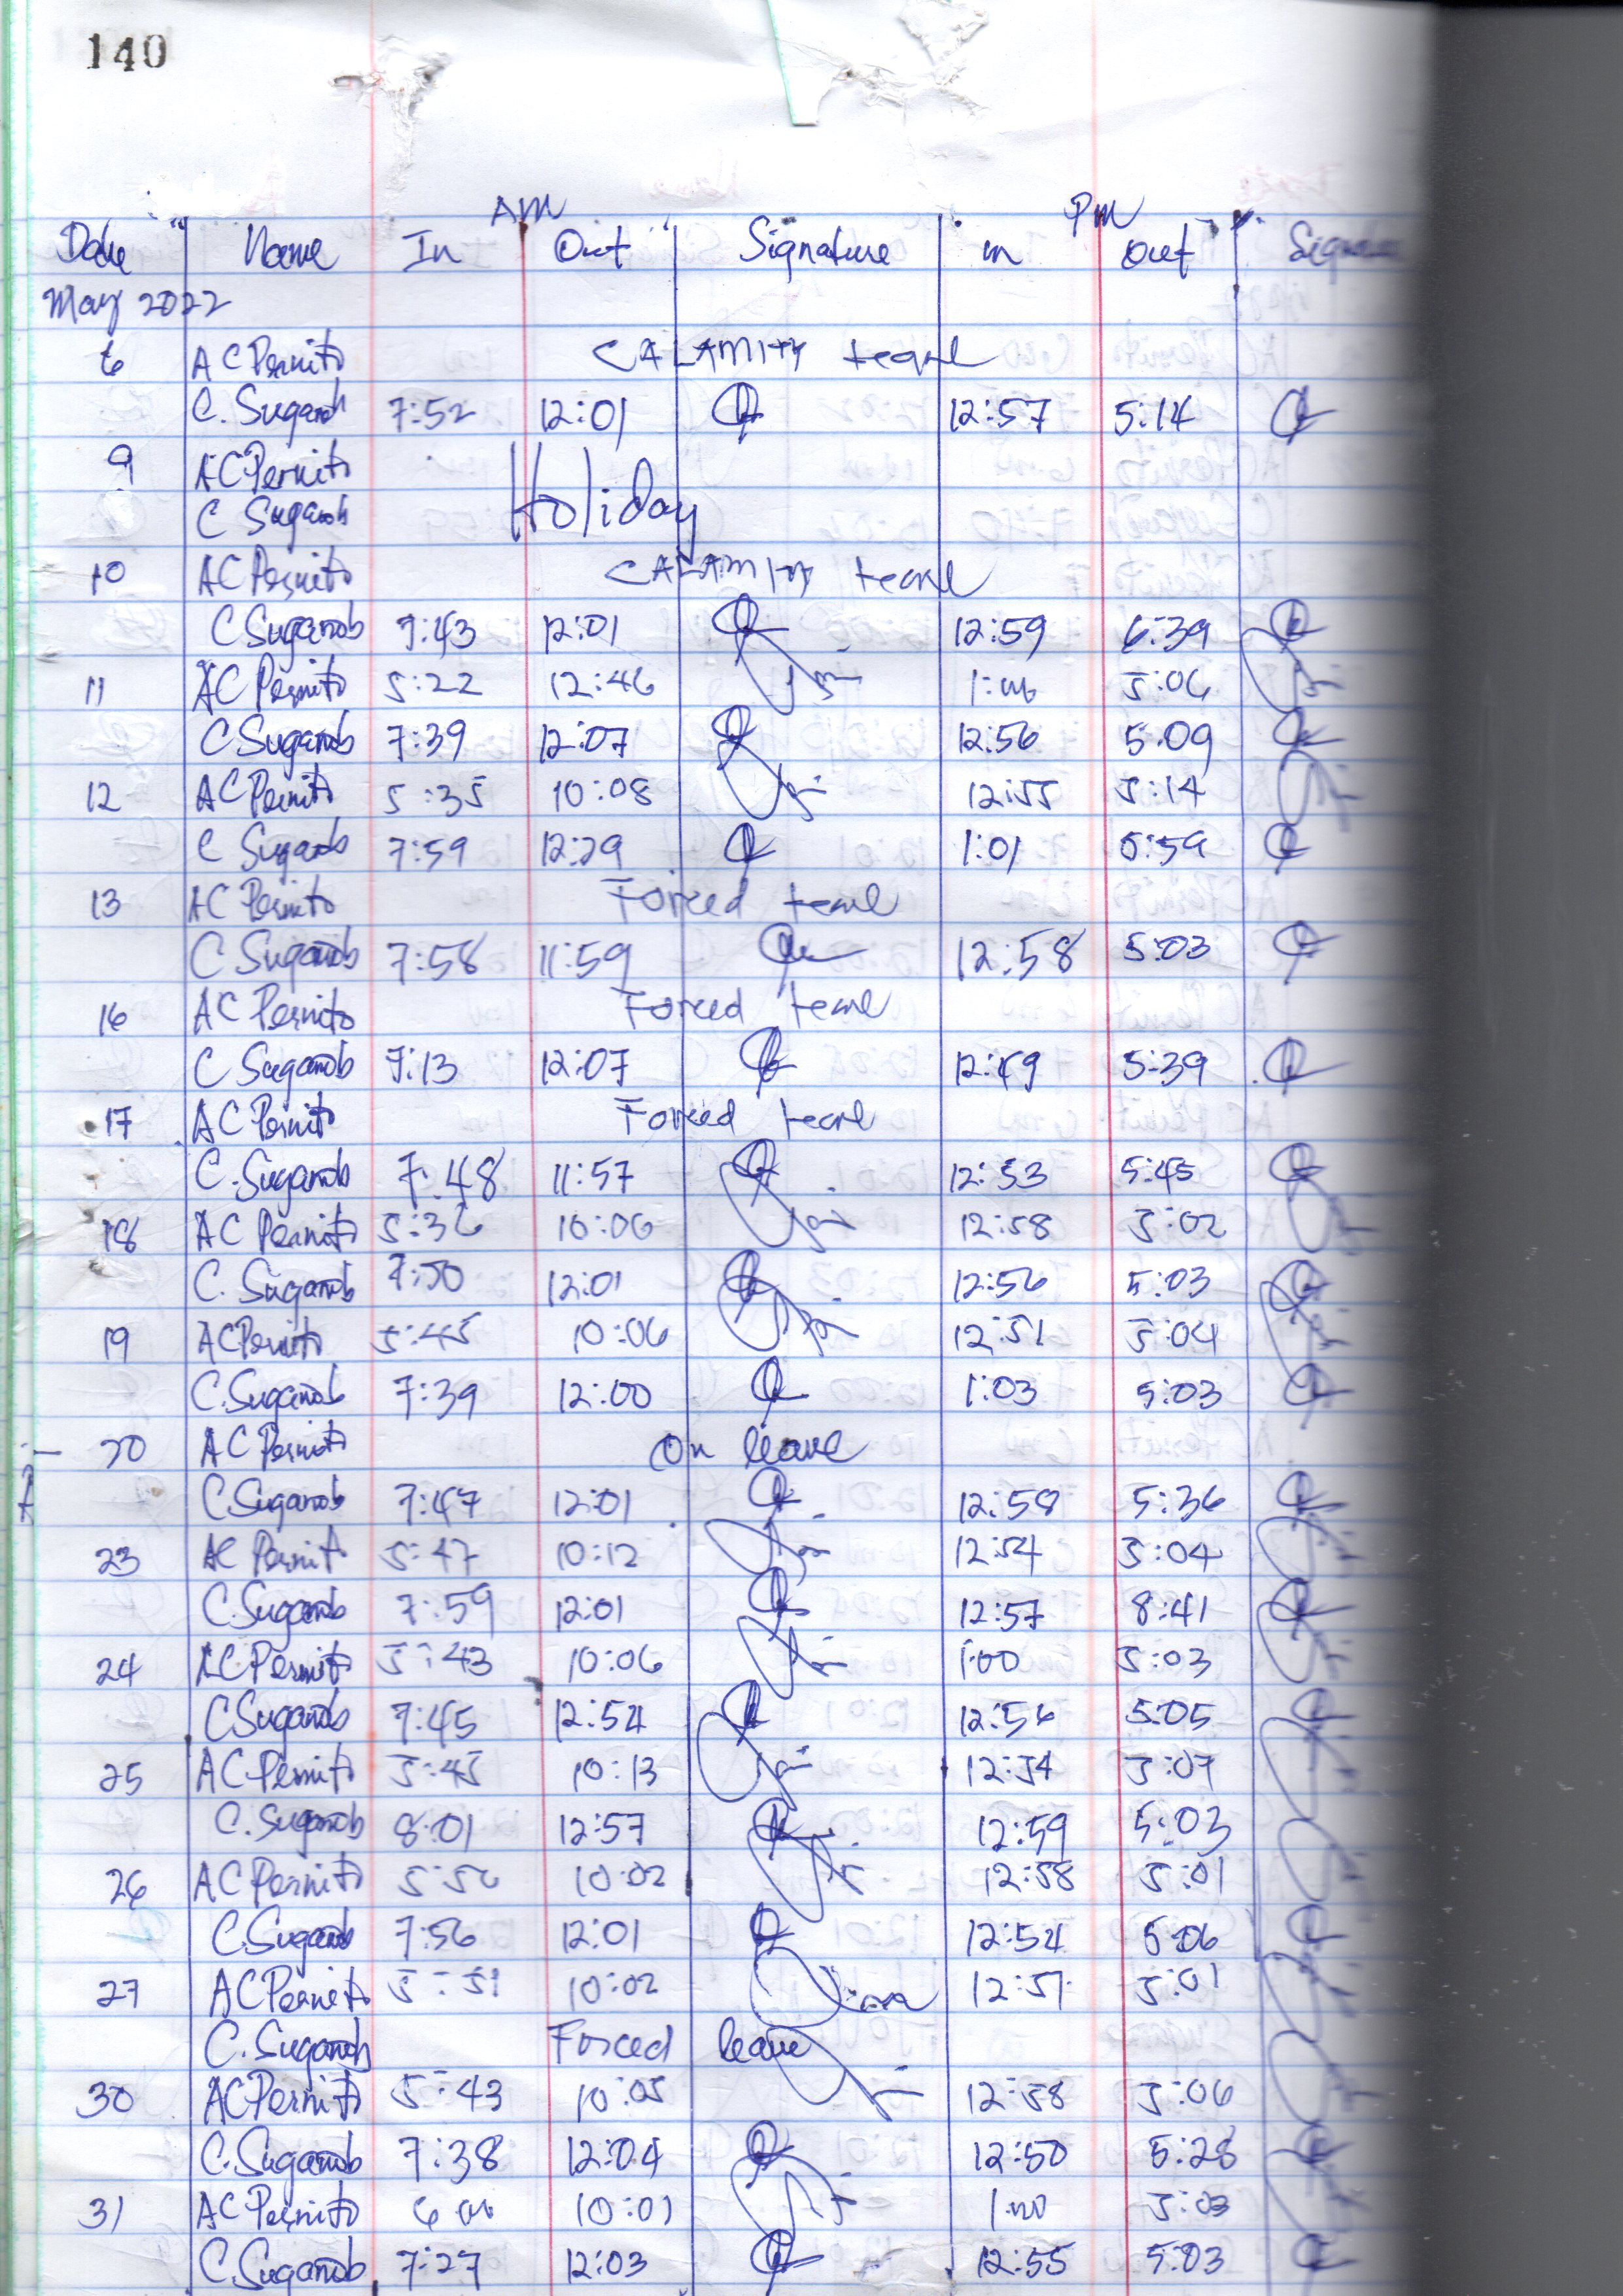 140
AM PM
Date Name In Out Signature in out Signature
May 2022
6 AC Pernito CALAMITY leave
C. Suganob 7:52 12:01 12:57 5:14
9 AC Pernito
Holiday
C Suganob
10 AC Pernito CALAMITY leave
C Suganob 7:43 12:01 12:59 6:39
11 AC Pernito 5:22 12:46 1:00 5:06
C Suganob 7:39 12:07 12:56 5:09
12 AC Pernito 5:35 10:08 12:55 5:14
C Suganob 7:59 12:29 1:01 5:59
13 AC Pernito Forced leave
C Suganob 7:58 11:59 12:58 5:03
16 AC Pernito Forced leave
C Suganob 7:13 12:07 12:49 5:39
17 AC Pernito Forced leave
C. Suganob 7:48 11:57 12:53 5:45
18 AC Pernito 5:36 10:06 12:58 5:02
C. Suganob 7:50 12:01 12:56 5:03
19 AC Pernito 5:45 10:06 12:51 5:04
C. Suganob 7:39 12:00 1:03 5:03
20 AC Pernito On leave
C. Suganob 7:47 12:01 12:58 5:36
23 AC Pernito 5:47 10:12 12:54 5:04
C. Suganob 7:59 12:01 12:57 8:41
24 AC Pernito 5:43 10:06 1:00 5:03
C Suganob 7:45 12:54 12:56 5:05
25 AC Pernito 5:45 10:13 12:54 5:07
C. Suganob 8:01 12:57 12:59 5:03
26 AC Pernito 5:50 10:02 12:58 5:01
C. Suganob 7:56 12:01 12:54 5:06
27 AC Pernito 5:51 10:02 12:51 5:01
C. Suganob Forced leave
30 AC Pernito 5:43 10:05 12:58 5:06
C. Suganob 7:38 12:04 12:50 5:28
31 AC Pernito 6:00 10:01 1:00 5:03
C. Suganob 7:27 12:03 12:55 5:03